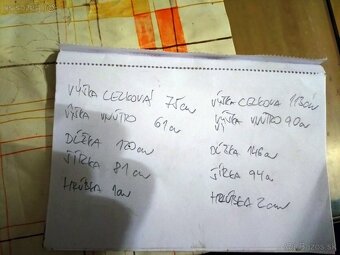 VÝŠKA CELKOVÁ 75cm
VÝŠKA VNÚTRO 61cm
DĹŽKA 120cm
ŠÍRKA 81cm
HRÚBKA 1cm
VÝŠKA CELKOVA 113cm
VÝŠKA VNÚTRO 90cm
DĹŽKA 146cm
ŠÍRKA 94cm
HRÚBKA 2cm